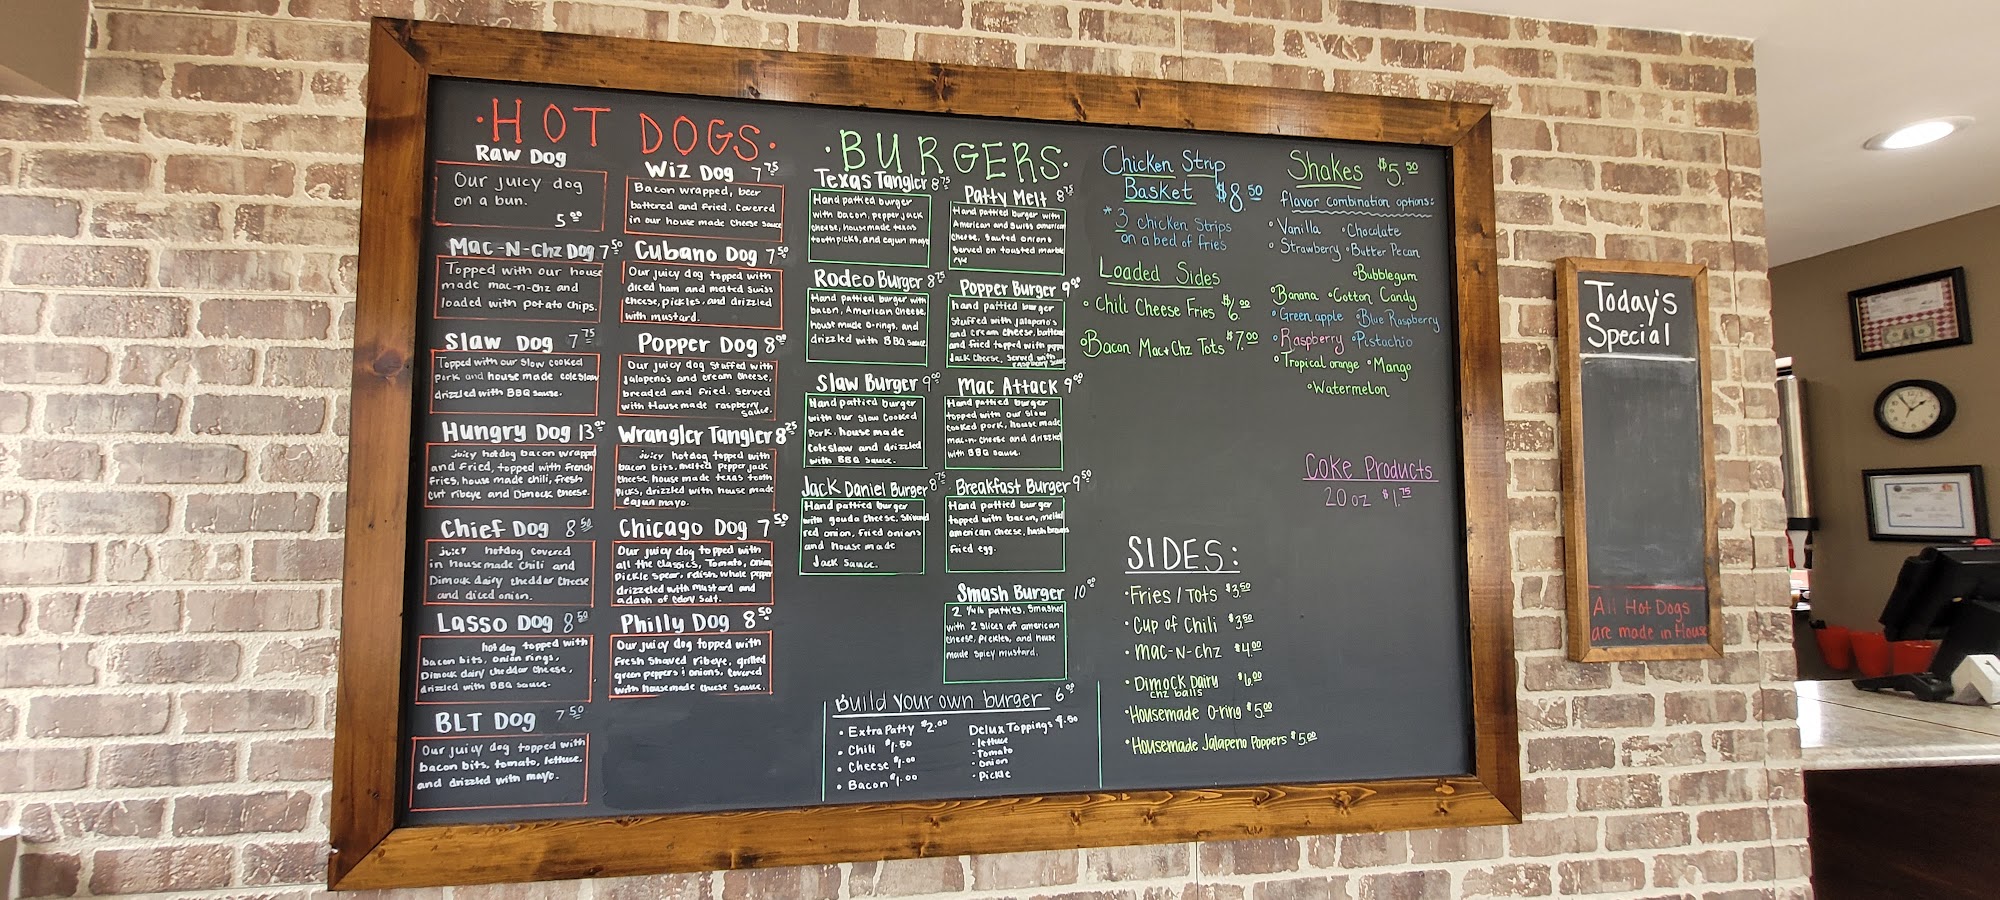 ·HOT DOGS·
Raw Dog
Our juicy dog
on a bun.
5.00
Mac-N-Chz Dog 7.50
Topped with our house
made mac-n-chz and
loaded with potato chips.
Slaw Dog 7.75
Topped with our slow cooked
Pork and house made coleslaw
drizzled with BBQ sause.
Hungry Dog 13.00
juicy hotdog bacon wrapped
and fried, topped with french
fries, house made chili, fresh
cut ribeye and Dimock cheese.
Chief Dog 8.50
juicy hotdog covered
in housemade chili and
Dimock dairy cheddar cheese
and diced onion.
Lasso Dog 8.50
hot dog topped with
bacon bits, onion rings,
Dimock dairy cheddar cheese,
drizzled with BBQ sauce.
BLT Dog 7.50
Our juicy dog topped with
bacon bits, tomato, lettuce,
and drizzled with mayo.
Wiz Dog 7.75
Bacon wrapped, beer
battered and fried. Covered
in our house made cheese sauce
Cubano Dog 7.50
Our juicy dog topped with
diced ham and melted swiss
cheese, pickles, and drizzled
with mustard.
Popper Dog 8.00
Our juicy dog stuffed with
Jalapeno's and cream cheese,
breaded and fried. Served
with Housemade raspberry
sauce.
Wrangler Tangler 8.25
juicy hotdog topped with
bacon bits, melted Pepper jack
cheese house made texas tooth
picks, drizzled with house made
Cajun mayo.
Chicago Dog 7.50
Our juicy dog topped with
all the classics, Tomato, onion,
Pickle spear, relish, whole pepper
drizzled with mustard and
a dash of celery salt.
Philly Dog 8.50
Our juicy dog topped with
fresh shaved ribeye, grilled
green peppers & onions, covered
with housemade cheese sauce.
·BURGERS·
Texas Tangler 8.75
Hand pattied burger
with bacon, pepper jack
cheese, housemade texas
toothpicks, and cajun mayo
Rodeo Burger 8.75
Hand pattied burger with
bacon, American cheese,
house made o-rings, and
drizzled with BBQ sauce.
Slaw Burger 9.00
Hand pattied burger
with our slow cooked
Pork, house made
Coleslaw and drizzled
with BBQ sauce.
Jack Daniel Burger 8.75
Hand pattied burger
with gouda cheese,
red onion, fried onions
and house made
Jack Sauce.
Patty Melt 8.75
Hand pattied burger with
American and Swiss american
cheese, sauted onions
served on toasted marble
rye
Popper Burger 9.00
hand pattied burger
stuffed with jalapeno's
and cream cheese, battered
and fried topped with pepper
Jack cheese, served with
raspberry sauce
Mac Attack 9.00
Hand pattied burger
topped with our slow
cooked pork, house made
mac-n-cheese and drizzled
with BBQ sauce.
Breakfast Burger 9.50
Hand pattied burger
topped with bacon, melted
american cheese, hashbrowns
fried egg.
Smash Burger 10.00
2 1/4lb patties, smashed
with 2 slices of american
cheese, pickles, and house
made spicy mustard.
Build your own burger 6.00
· Extra Patty $2.00
· Chili $1.50
· Cheese $1.00
· Bacon $1.00
Delux Toppings 4.50
· lettuce
· Tomato
· Onion
· Pickle
Chicken Strip
Basket $8.50
* 3 chicken strips
on a bed of fries
Loaded Sides
· Chili Cheese Fries $6.00
· Bacon Mac+Chz Tots $7.00
SIDES:
·Fries / Tots $3.50
· Cup of Chili $3.50
· Mac-N-Chz $4.00
· Dimock Dairy $6.00
chz balls
·Housemade O-ring $5.00
·Housemade Jalapeno Poppers $5.00
Shakes $5.50
flavor combination options:
·Vanilla ·Chocolate
·Strawberry ·Butter Pecan
·Bubblegum
·Banana ·Cotton Candy
·Green apple ·Blue Raspberry
·Raspberry ·Pistachio
·Tropical orange ·Mango
·Watermelon
Coke Products
20oz $1.75
Today's
Special
All Hot Dogs
are made in House